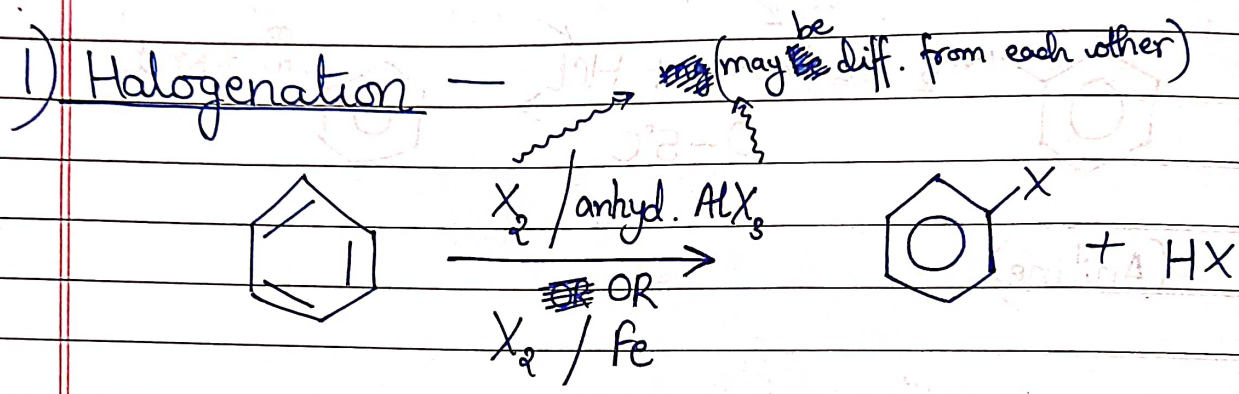 1) Halogenation — (may be diff. from each other)
X₂ / anhyd. AlX₃
X
+ HX
OR
X₂ / Fe